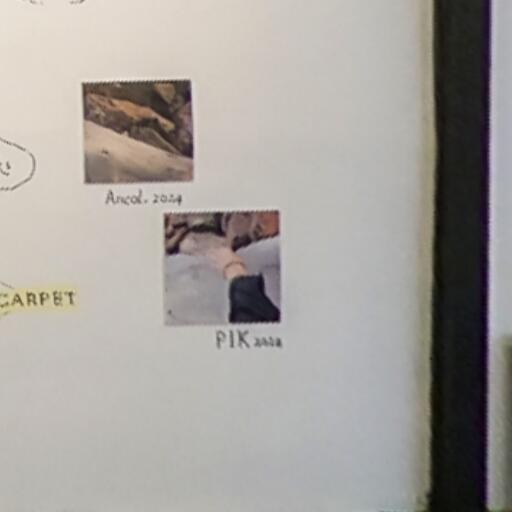 Ancol. 2024
CARPET
PIK